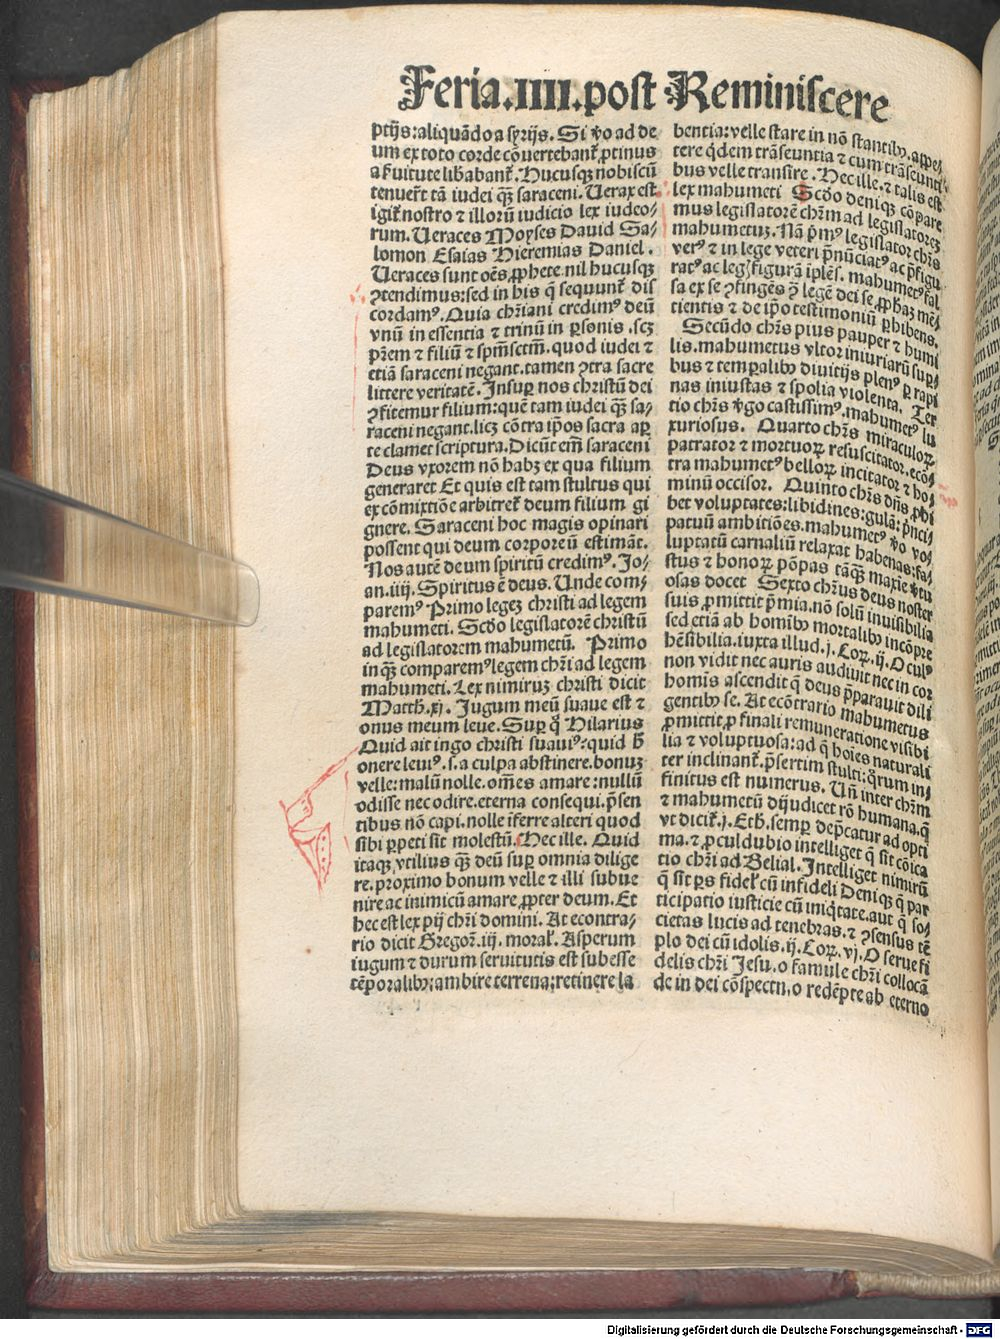 Feria.IIII.post Reminiscere
ptijs:aliquādo a syrijs. Si ꝟo ad de
um ex toto corde cōuertebant᷑ ꝓtinus
a ẜuitute libabant᷑. Hucusqꝫ nobiscū
tenuer̄t tā iudei qꝫ saraceni. Uerax est
igit᷑ nostro ⁊ illorū iudicio lex iudeo⸗
rum. Ueraces Moyses Dauid Sa⸗
lomon Esaias Hieremias Daniel.
Ueraces sunt oēs ꝓphete. nil hucusqꝫ
ꝯtendimus:sed in his q̄ sequunt᷑ dis
cordamꝰ. Quia chr̄iani credimꝰ deū
vnū in essentia ⁊ trinū in ꝑsonis .scꝫ
pr̄em ⁊ filiū ⁊ sp̄m sctm̄. quod iudei ⁊
etiā saraceni negant. tamen ꝯtra sacre
littere veritatē. Insuꝑ nos christū dei
ꝯfitemur filium: quē tam iudei qꝫ sa⸗
raceni negant. licꝫ cōtra ip̄os sacra aꝑ
te clamet scriptura. Dicūt em̄ saraceni
Deus vxorem nō habꝫ ex qua filium
generaret Et quis est tam stultus qui
ex cōmixtiōe arbitret᷑ deum filium gi
gnere. Saraceni hoc magis opinari
possent qui deum corporeū estimāt.
Nos autē deum spiritū credimꝰ. Jo⸗
an.iiij. Spiritus ē deus. Unde com⸗
paremꝰ Primo legeꝫ christi ad legem
mahumeti. Scd̄o legislatorē christū
ad legislatorem mahumetū. Primo
inqꝫ comparemꝰ legem chr̄i ad legem
mahumeti. Lex nimiruꝫ christi dicit
Matth.xj. Jugum meū suaue est ⁊
onus meum leue. Suꝑ qͦ Hilarius
Quid ait ingo christi suauiꝰ: quid h̄
onere leuiꝰ. s. a culpa abstinere. bonuꝫ
velle: malū nolle. om̄es amare: nullū
odisse nec odire. eterna consequi. p̄sen
tibus nō capi. nolle īferre alteri quod
sibi ꝑpeti sit molestū. Hec ille. Quid
itaqꝫ vtilius qꝫ deū suꝑ omnia dilige
re. proximo bonum velle ⁊ illi subue
nire ac inimicū amare ꝓpter deum. Et
hec est lex pij chr̄i domini. At econtra⸗
rio dicit Gregor̄. iij. moral̄. Asperum
iugum ⁊ durum seruitutis est subesse
tēꝑoralibꝰ; ambire terrena; retinere la
bentia: velle stare in nō stantibꝰ. appe⸗
tere q̇dem trāseuntia ⁊ cum trāseunti⸗
bus velle transire. Hec ille. ⁊ talis est
lex mahumeti Scd̄o deniqꝫ cōpare
mus legislatorē chr̄m ad legislatoreꝫ
mahumetuꝫ. Nā p̄mꝰ legislator chr̄s
verꝰ ⁊ in lege veteri p̄nūciatꝰ ac p̄figu
ratꝰ ac leg figurā īplēs. mahumetꝰ fal
sa ex se ꝯfingēs
tientis ⁊ de ip̄o testimoniū ꝑhibens.
Secūdo chr̄s pius pauper ⁊ humi
lis. mahumetus vltor iniuriarū suꝑ⸗
bus ⁊ temꝑalibꝰ diuitijs plenꝰ ꝑ rapi
nas iniustas ⁊ spolia violenta. Ter
tio chr̄s ꝟgo castissimꝰ. mahumetꝰ lu
xuriosus. Quarto chr̄s miraculoꝝ
patrator ⁊ mortuoꝝ resuscitator. ecō⸗
tra mahumetꝰ belloꝝ incitator ⁊ ho⸗
minū occisor. Quinto chr̄s dn̄s ꝓhi
bet voluptates: libidines: gulā: p̄nci⸗
patuū ambitiōes. mahumetꝰ ꝟo vo⸗
luptatū carnaliū relaxat habenas: fa⸗
stus ⁊ honoꝝ pōpas tāqꝫ maxīe ꝟtu
osas docet Sexto chr̄us deus noster
suis ꝓmittit p̄mia. nō solū inuisibilia
sed etiā ab homībꝰ mortalibꝰ incōpre
hēsibilia. iuxta illud. j. Coꝝ. ij. Oculꝰ
non vidit nec auris audiuit nec in cor
homis ascendit q̄ deus p̄parauit dili
gentibꝰ se. At ecōtrario mahumetus
ꝓmittit ꝓ finali remuneratione visibi
lia ⁊ voluptuosa: ad q̄ hoīes naturali
ter inclinant᷑. p̄sertim stulti: q̇rum in⸗
finitus est numerus. Un̄ inter chr̄m
⁊ mahumetū dijudicet rō humana. q̄
vt dicit᷑. j. Eth. semꝑ dep̄catur ad opti
ma. ⁊ ꝓculdubio intelliget q̄ sit cōica
tio chr̄i ad Belial. Intelliget nimirū
q̄ sit ꝑs fidel̄ cū infideli Deniqꝫ q̄ par
ticipatio iusticie cū iniq̇tate. aut q̄ so⸗
cietas lucis ad tenebras. ⁊ ꝯsensus tē
plo dei cū idolis. ij. Coꝝ. vj. O serue fi
delis chr̄i Jesu. o famule chr̄i collocā
de in dei cōspectu, o redēpte ab eterno
Digitalisierung gefördert durch die Deutsche Forschungsgemeinschaft - DFG